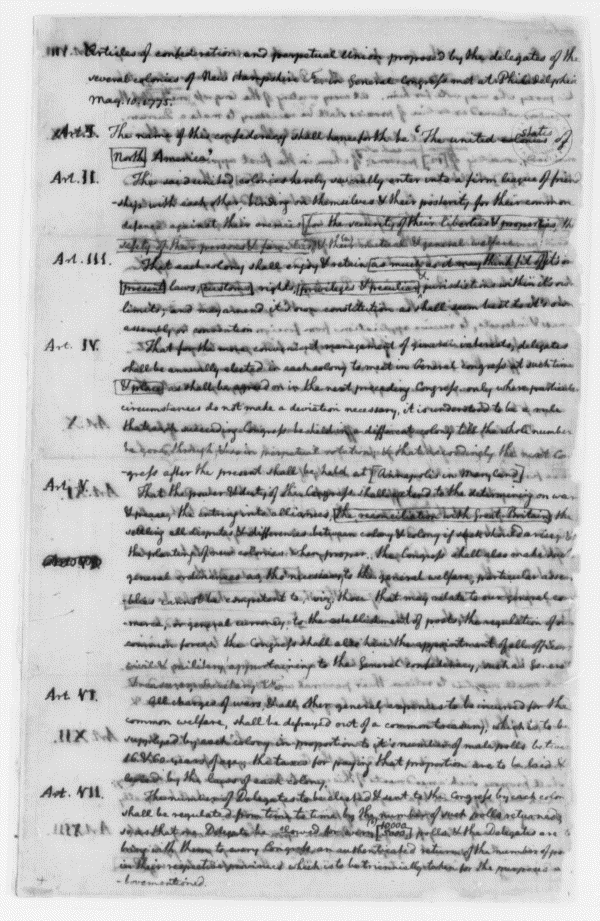 Articles of confederation and perpetual Union proposed by the delegates of the
several colonies of New Hampshire &c. in General Congress met at Philadelphia
May. 10. 1775.
Art. I. The name of this confederacy shall henceforth be "The united colonies States of
North America."
Art. II. The said united colonies hereby severally enter into a firm league of friend
ship with each other, binding on themselves & their posterity, for their common
defence against their enemies for the security of their liberties & properties, the
safety of their persons & families & their mutual & general welfare.
Art. III. That each colony shall enjoy & retain as much as it may think fit of it's own
present laws, customs, rights, privileges & peculiar jurisdictions within it's own
limits; and may amend it's own constitution as shall seem best to it's own
assembly or convention.
Art. IV. That for the more convenient management of general interests, delegates
shall be annually elected in each colony to meet in General Congress at such time
& place as shall be agreed on in the next preceding Congress. only where particular
circumstances do not make a deviation necessary, it is understood to be a rule
that each succeeding Congress be held in a different colony till the whole number
be gone through & so in perpetual rotation; & that accordingly the next Con
-gress after the present shall be held at Annapolis in Maryland
Art. V. That the power & duty of the Congress shall extend to the determining on war
& peace, the entering into alliances, the reconciliation with Great Britain, the
settling all disputes & differences between colony & colony if such should arise, &
the planting of new colonies when proper. the Congress shall also make such
general ordinances as tho' necessary to the general welfare, particular assem
blies cannot be competent to, viz, those that may relate to our general com
merce, or general currency, to the establishment of posts, the regulation of our
common forces. the Congress shall also have the appointment of all officers
civil & military, appertaining to the General confederacy, such as General
Treasurer, Secretary &c.
Art. VI. All charges of wars, & all other general expences to be incurred for the
common welfare, shall be defrayed out of a common treasury, which is to be
supplied by each colony in proportion to it's number of male polls between
16 & 60 years of age; the taxes for paying that proportion are to be laid &
levied by the laws of each colony.
Art. VII. The number of Delegates to be elected & sent to the Congress by each colony
shall be regulated from time to time by the number of such polls returned,
so as that one Delegate be allowed for every 5000 polls. & the Delegates are to
bring with them to every Congress an authenticated return of the number of polls
in their respective provinces which is to be triennially taken for the purposes a
-bovementioned.